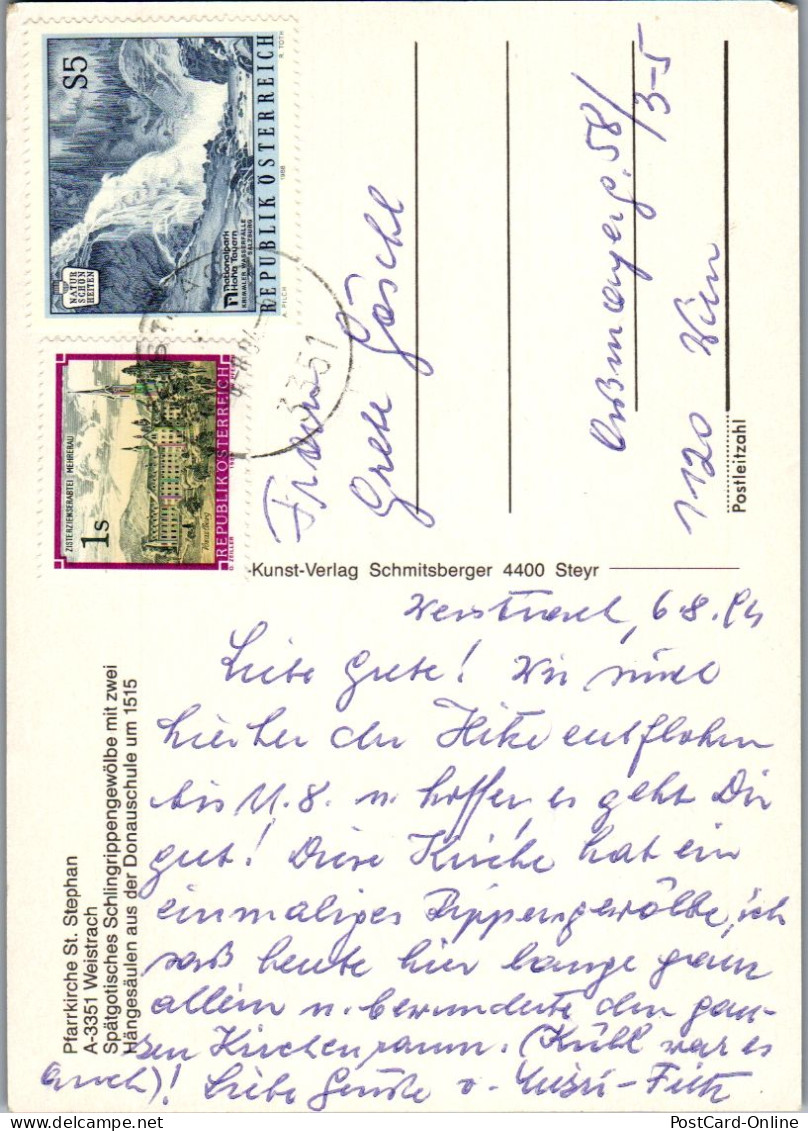 S5
REPUBLIK ÖSTERREICH
NATUR
SCHÖN
HEITEN
Nationalpark
Hohe Tauern
KRIMMLER WASSERFÄLLE
SALZBURG
A. PILCH
1988
R. TOTH
ZISTERZIENSERABTEI MEHRERAU
1s
Vorarlberg
REPUBLIK ÖSTERREICH
O. ZEILER
3351
Frau
Grete Göschl
58/
3-5
1120 Wien
Postleitzahl
Kunst-Verlag Schmitsberger 4400 Steyr
Pfarrkirche St. Stephan
A-3351 Weistrach
Spätgotisches Schlingrippengewölbe mit zwei
Hängesäulen aus der Donauschule um 1515
Weistrach, 6.8.94
Liebe Grete! Wir sind
hierher der Hitze entflohen
bis 11.8. u. hoffen, es geht Dir
gut! Diese Kirche hat ein
einmaliges Rippengewölbe, ich
saß heute hier lange ganz
allein u. bewunderte den gan-
zen Kirchenraum. (Kühl war es
auch)! Liebe Grüße v.
PostCard-Online